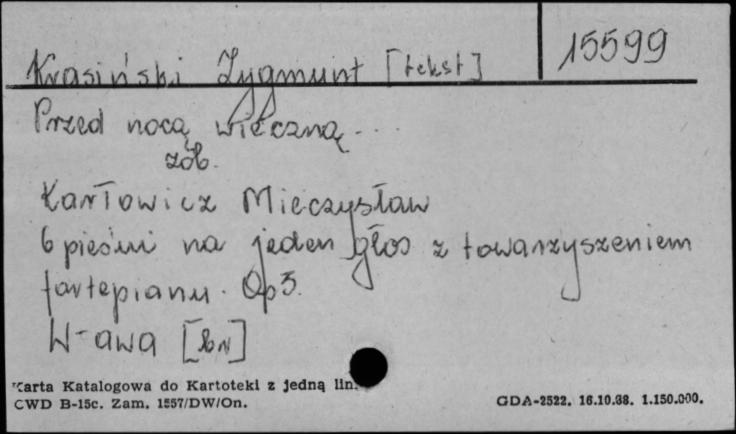 15599
Krasiński Zygmunt [tekst]
Przed nocą wieczną...
zob.
Karłowicz Mieczysław
6 pieśni na jeden głos z towarzyszeniem
fortepianu. Op 3.
W-awa [br]
Karta Katalogowa do Kartoteki z jedną lin.
CWD B-15c. Zam. 1557/DW/On.
GDA-2522. 16.10.68. 1.150.000.